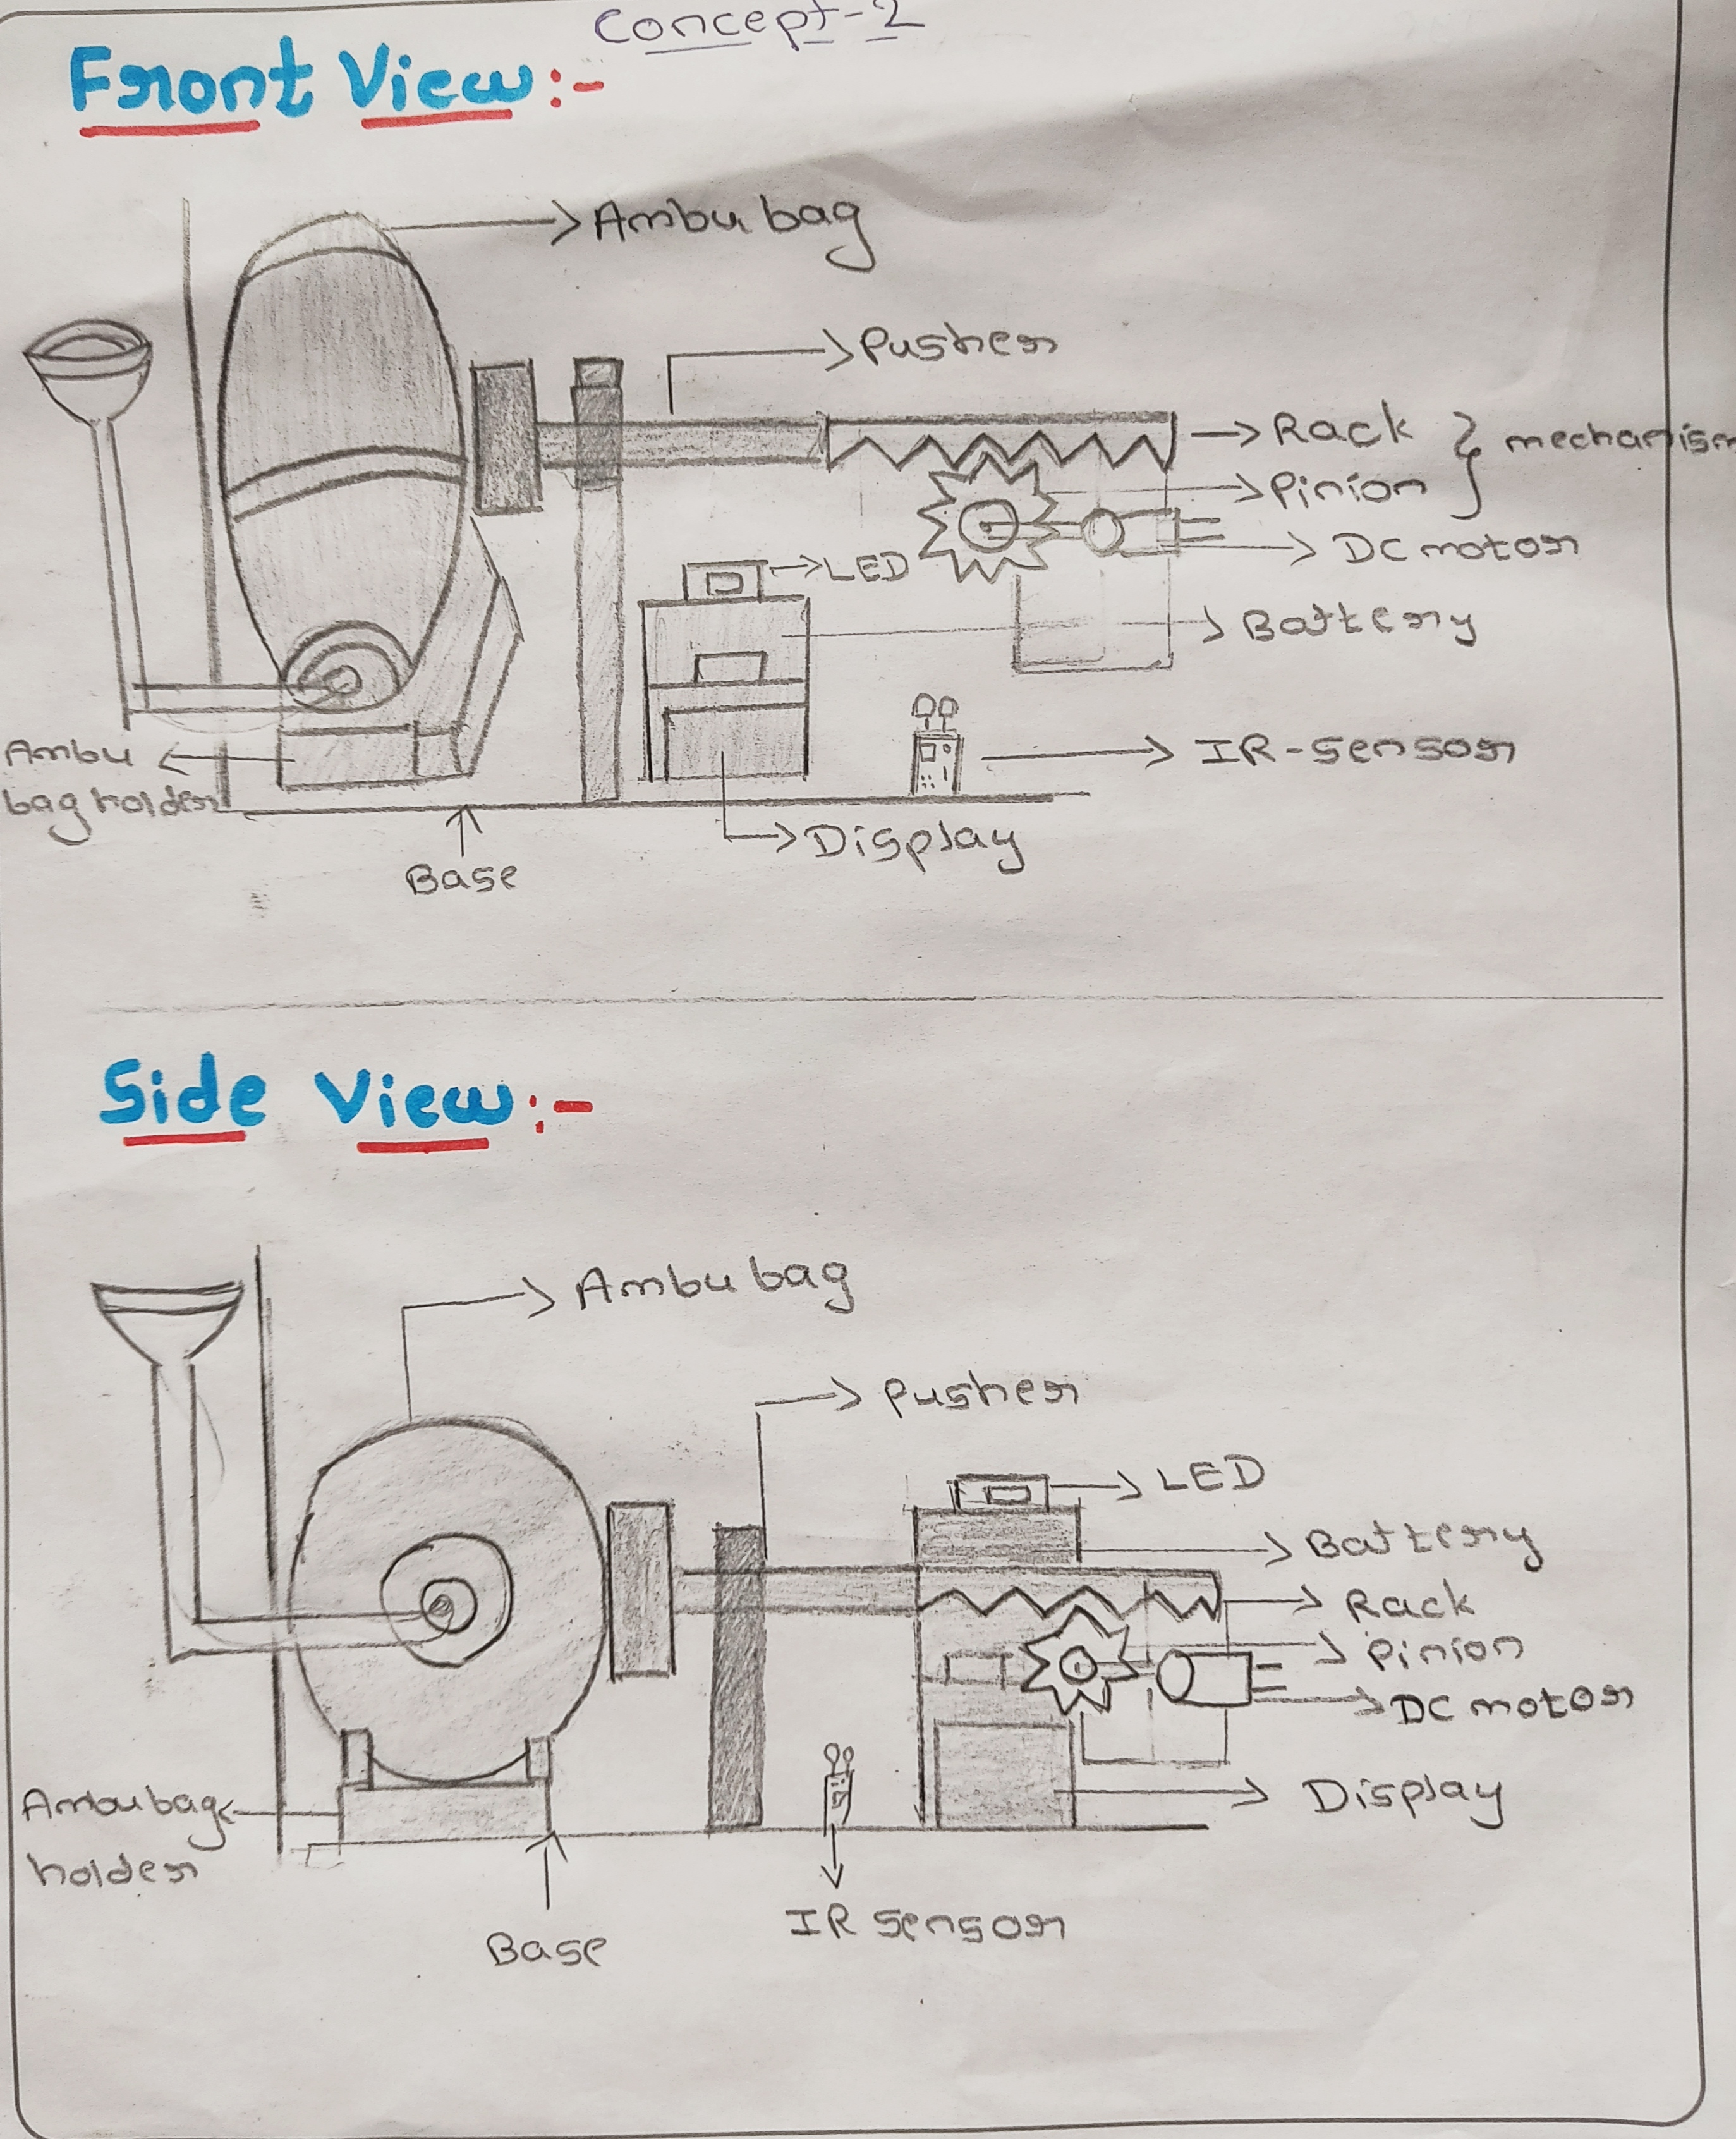 Concept-2
Front View:-
Ambu bag
Pusher
Rack } mechanism
Pinion
DC motor
LED
Battery
IR-sensor
Ambu
bag holder
Display
Base
Side View:-
Ambu bag
Pusher
LED
Battery
Rack
Pinion
DC motor
Display
Ambu bag
holder
IR sensor
Base